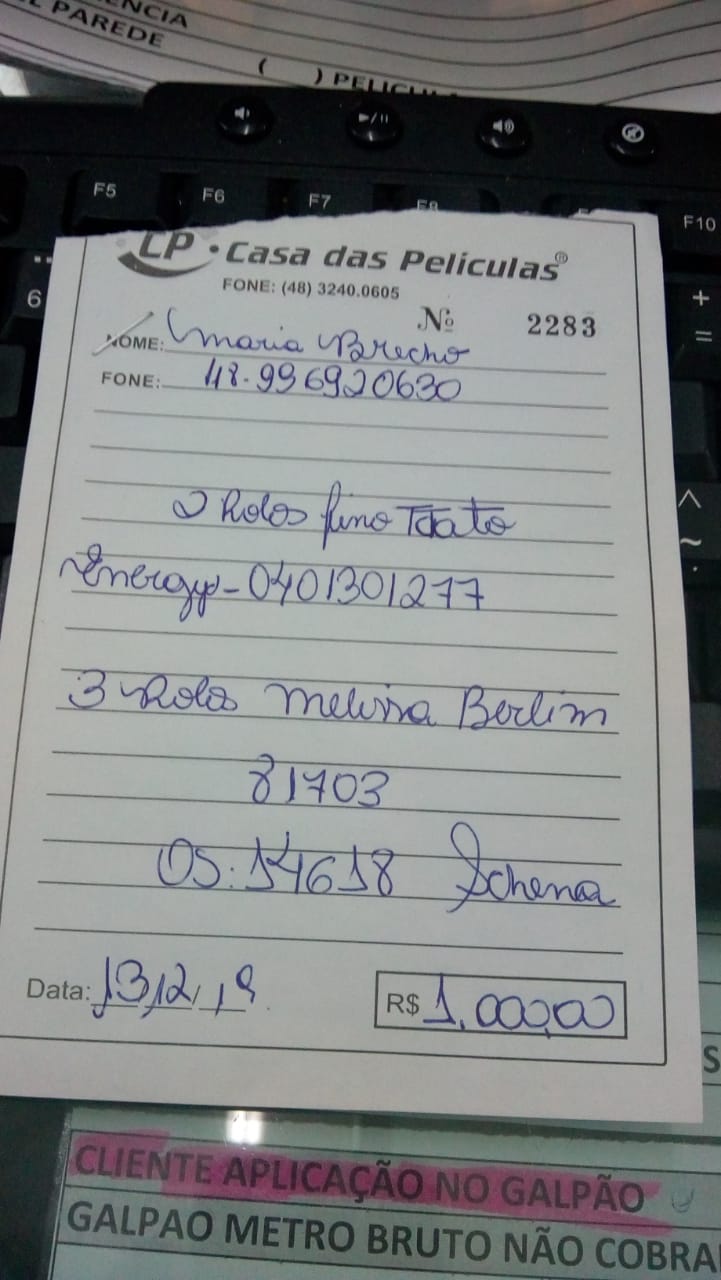 ENCIA
PAREDE
( ) PELICU
F5 F6 F7 F8 F10
6
+
=
^
~
LP • Casa das Películas®
FONE: (48) 3240.0605
Nº 2283
NOME: Maria Brecho
FONE: 48.996920630
2 Rolos fino Trato
Energy - 0401301277
3 Rolos Melissa Berlim
81703
OS: 14618 Schena
Data: 13/12/19
R$ 1.000,00
S
CLIENTE APLICAÇÃO NO GALPÃO
GALPAO METRO BRUTO NÃO COBRA